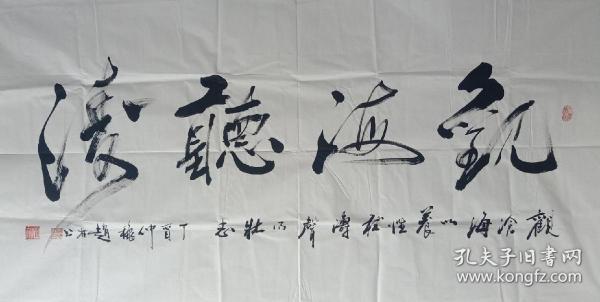 觀海聽濤
觀滄海以養性聽濤聲而壯志丁酉仲秋趙
孔夫子旧书网
www.kongfz.com